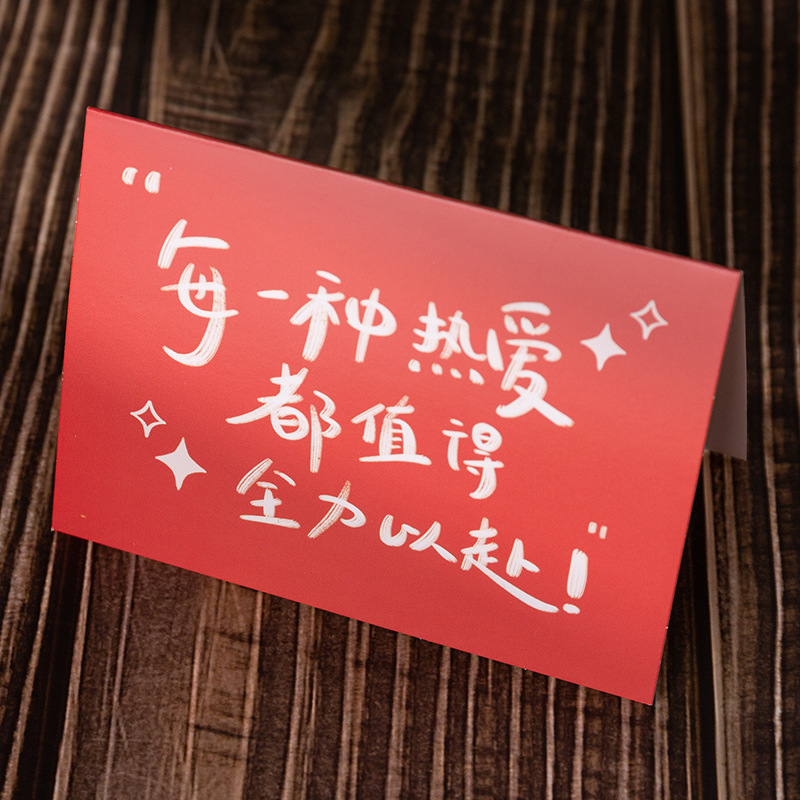 “每一种热爱
都值得
全力以赴！”